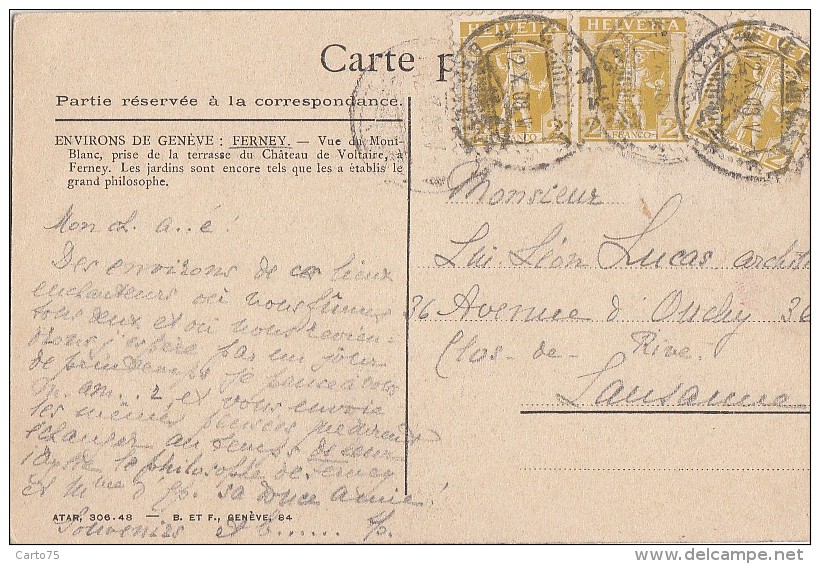 HELVETIA
2
FRANCO
HELVETIA
2
FRANCO
2
2
Carte p
Partie réservée à la correspondance.
ENVIRONS DE GENÈVE : FERNEY. — Vue du Mont-
Blanc, prise de la terrasse du Château de Voltaire, à
Ferney. Les jardins sont encore tels que les a établis le
grand philosophe.
Mon ch. a..é!
Des environs de ces lieux
enchanteurs où nous fûmes
tous deux et où nous revien-
drons j'espère par un jour
de printemps je pense à vous
p. am...z et vous envoie
les mêmes pensées que
échanger au temps de
le philosophe de Ferney
et Mme d'Ep. sa douce amie!
Souvenirs et b...... p.
Monsieur
Léon Lucas archit
36 Avenue d'Ouchy 36
Clos-de-Rive.
Lausanne
ATAR, 306.48 — B. ET F., GENÈVE, 84
Carto75
www.delcampe.net